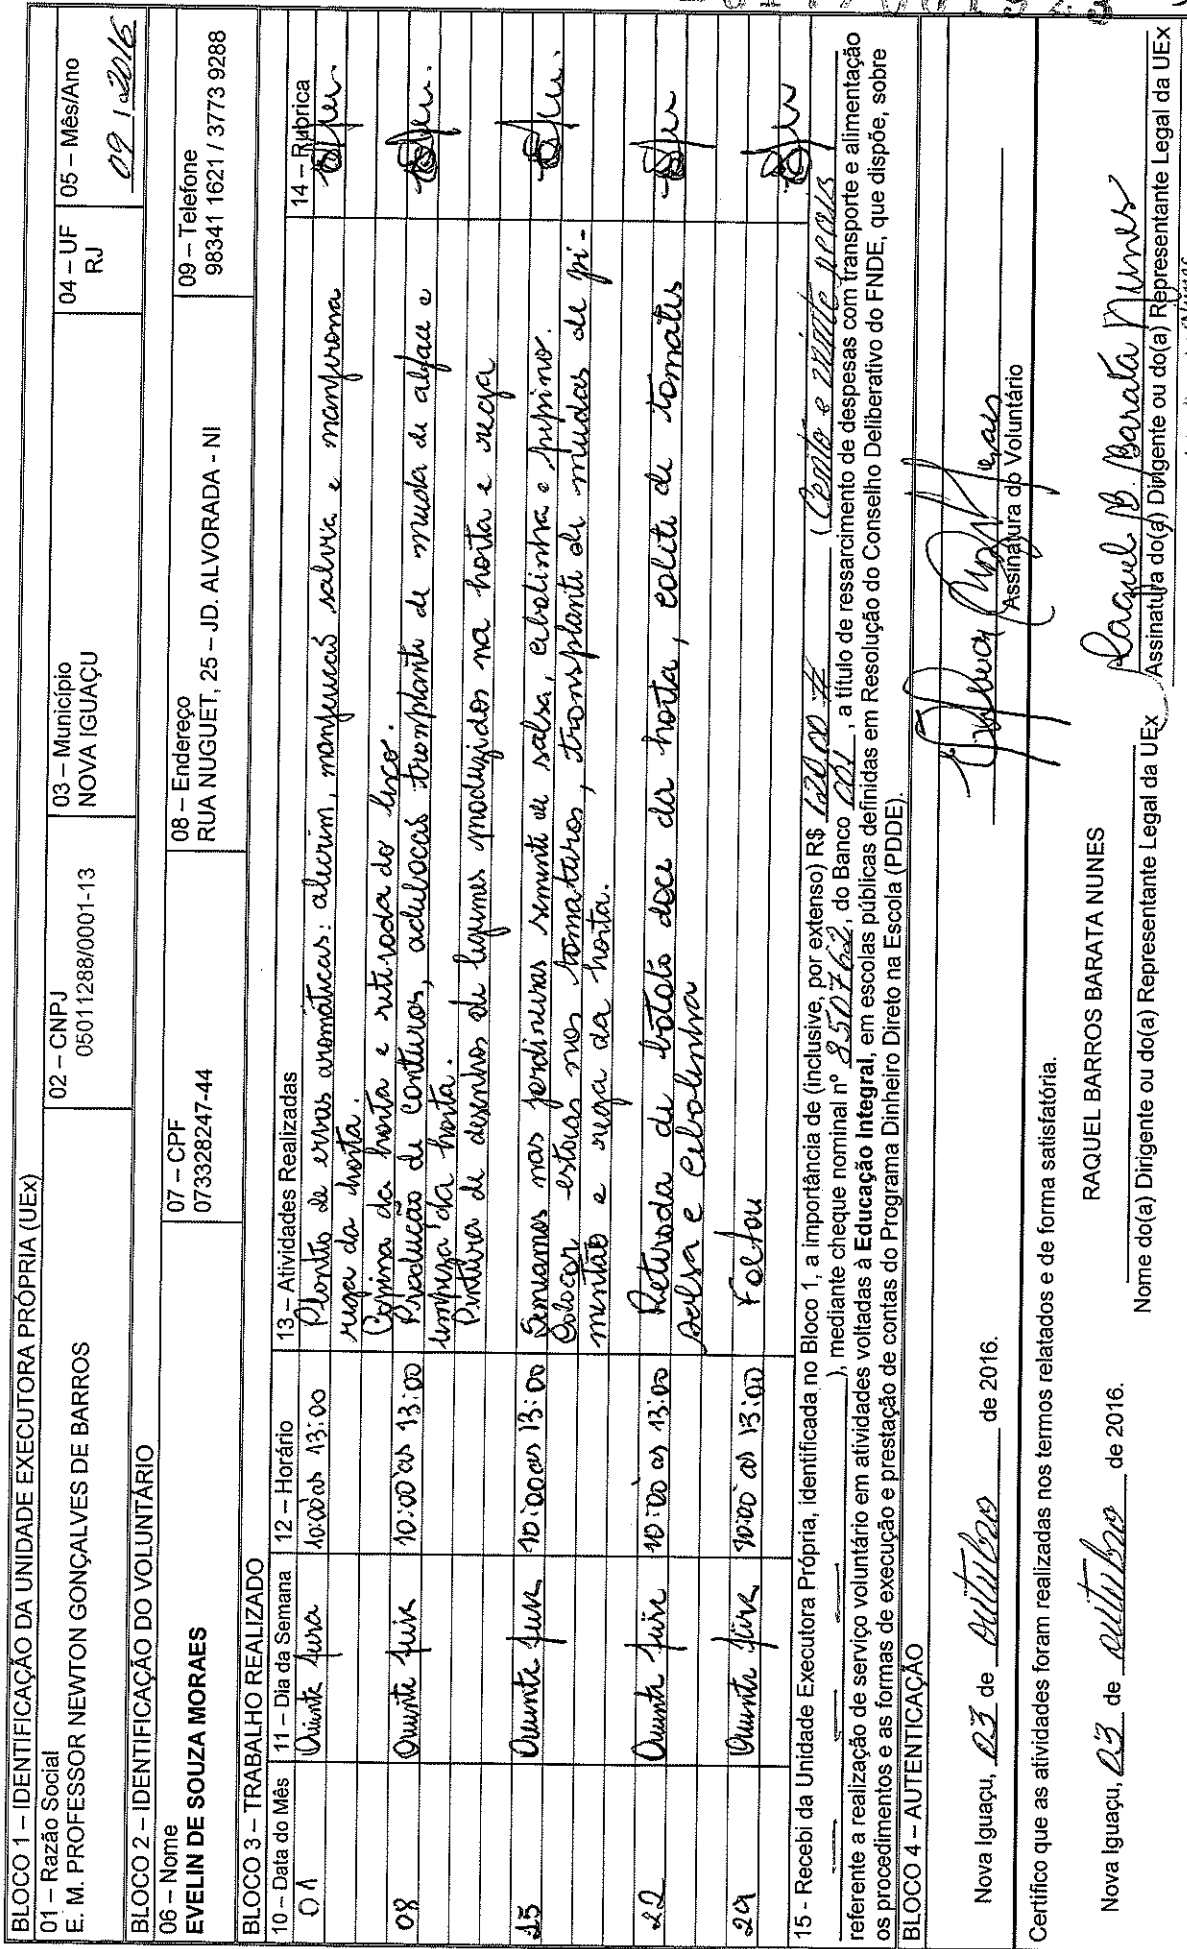 BLOCO 1 – IDENTIFICAÇÃO DA UNIDADE EXECUTORA PRÓPRIA (UEx)
01 – Razão Social
E. M. PROFESSOR NEWTON GONÇALVES DE BARROS
02 – CNPJ
05011288/0001-13
03 – Município
NOVA IGUAÇU
04 – UF
RJ
05 – Mês/Ano
09 / 2016
BLOCO 2 – IDENTIFICAÇÃO DO VOLUNTÁRIO
06 – Nome
EVELIN DE SOUZA MORAES
07 – CPF
073328247-44
08 – Endereço
RUA NUGUET, 25 – JD. ALVORADA - NI
09 – Telefone
98341 1621 / 3773 9288
BLOCO 3 – TRABALHO REALIZADO
10 – Data do Mês 11 – Dia da Semana 12 – Horário 13 – Atividades Realizadas 14 – Rubrica
01 Quinta feira 10:00 às 13:00 Plantio de ervas aromáticas: alecrim, manjericão salvia e manjerona
rega da horta.
Capina da horta e retirada do lixo.
08 Quinta feira 10:00 às 13:00 Produção de canteiros, adubação transplante de muda de alface e
limpeza da horta.
Pintura de desenhos de legumes produzidos na horta e rega
15 Quinta feira 10:00 as 13:00 Semiamos nas jardineiras semente de salsa, cebolinha e pepino.
Colocar estacas nos tomateiros, transplante de mudas de pi-
mentão e rega da horta.
22 Quinta feira 10:00 as 13:00 Retirada de batata doce da horta, colite de tomates
salsa e cebolinha
29 Quinta feira 10:00 as 13:00 Faltou
15 - Recebi da Unidade Executora Própria, identificada no Bloco 1, a importância de (inclusive, por extenso) R$ 120,00 # (Cento e vinte reais
), mediante cheque nominal nº 850762, do Banco 001, a título de ressarcimento de despesas com transporte e alimentação
referente a realização de serviço voluntário em atividades voltadas à Educação Integral, em escolas públicas definidas em Resolução do Conselho Deliberativo do FNDE, que dispõe, sobre
os procedimentos e as formas de execução e prestação de contas do Programa Dinheiro Direto na Escola (PDDE).
BLOCO 4 – AUTENTICAÇÃO
Nova Iguaçu, 03 de outubro de 2016.
Assinatura do Voluntário
Certifico que as atividades foram realizadas nos termos relatados e de forma satisfatória.
Nova Iguaçu, 03 de outubro de 2016.
RAQUEL BARROS BARATA NUNES
Nome do(a) Dirigente ou do(a) Representante Legal da UEx
Raquel B. Barata Nunes
Assinatura do(a) Dirigente ou do(a) Representante Legal da UEx